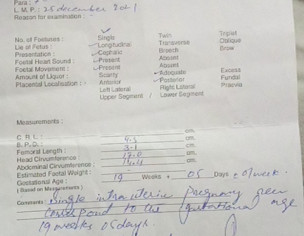 Para :
L. M. P. : 25 december 2021
Reason for examination :
No. of Foetuses : Single Twin Triplet
Lie of Fetus : Longitudinal Transverse Oblique
Presentation : Cephalic Breech Brow
Foetal Heart Sound : Present Absent
Foetal Movement : Present Absent
Amount of Liquor : Scanty Adequate Excess
Placental Localisation : Anterior Posterior Fundal
Left Lateral Right Lateral Praevia
Upper Segment / Lower Segment
Measurements :
C. R. L. : cm.
B. P. D. : cm.
Femoral Length : cm.
Head Circumference : cm.
Abdominal Circumference :
Estimated Foetal Weight :
Gestational Age : 19 Weeks + 05 Days
( Based on Measurements )
Comments : Single intrauterine pregnancy seen
correspond to the gestational age
19 weeks 05 days